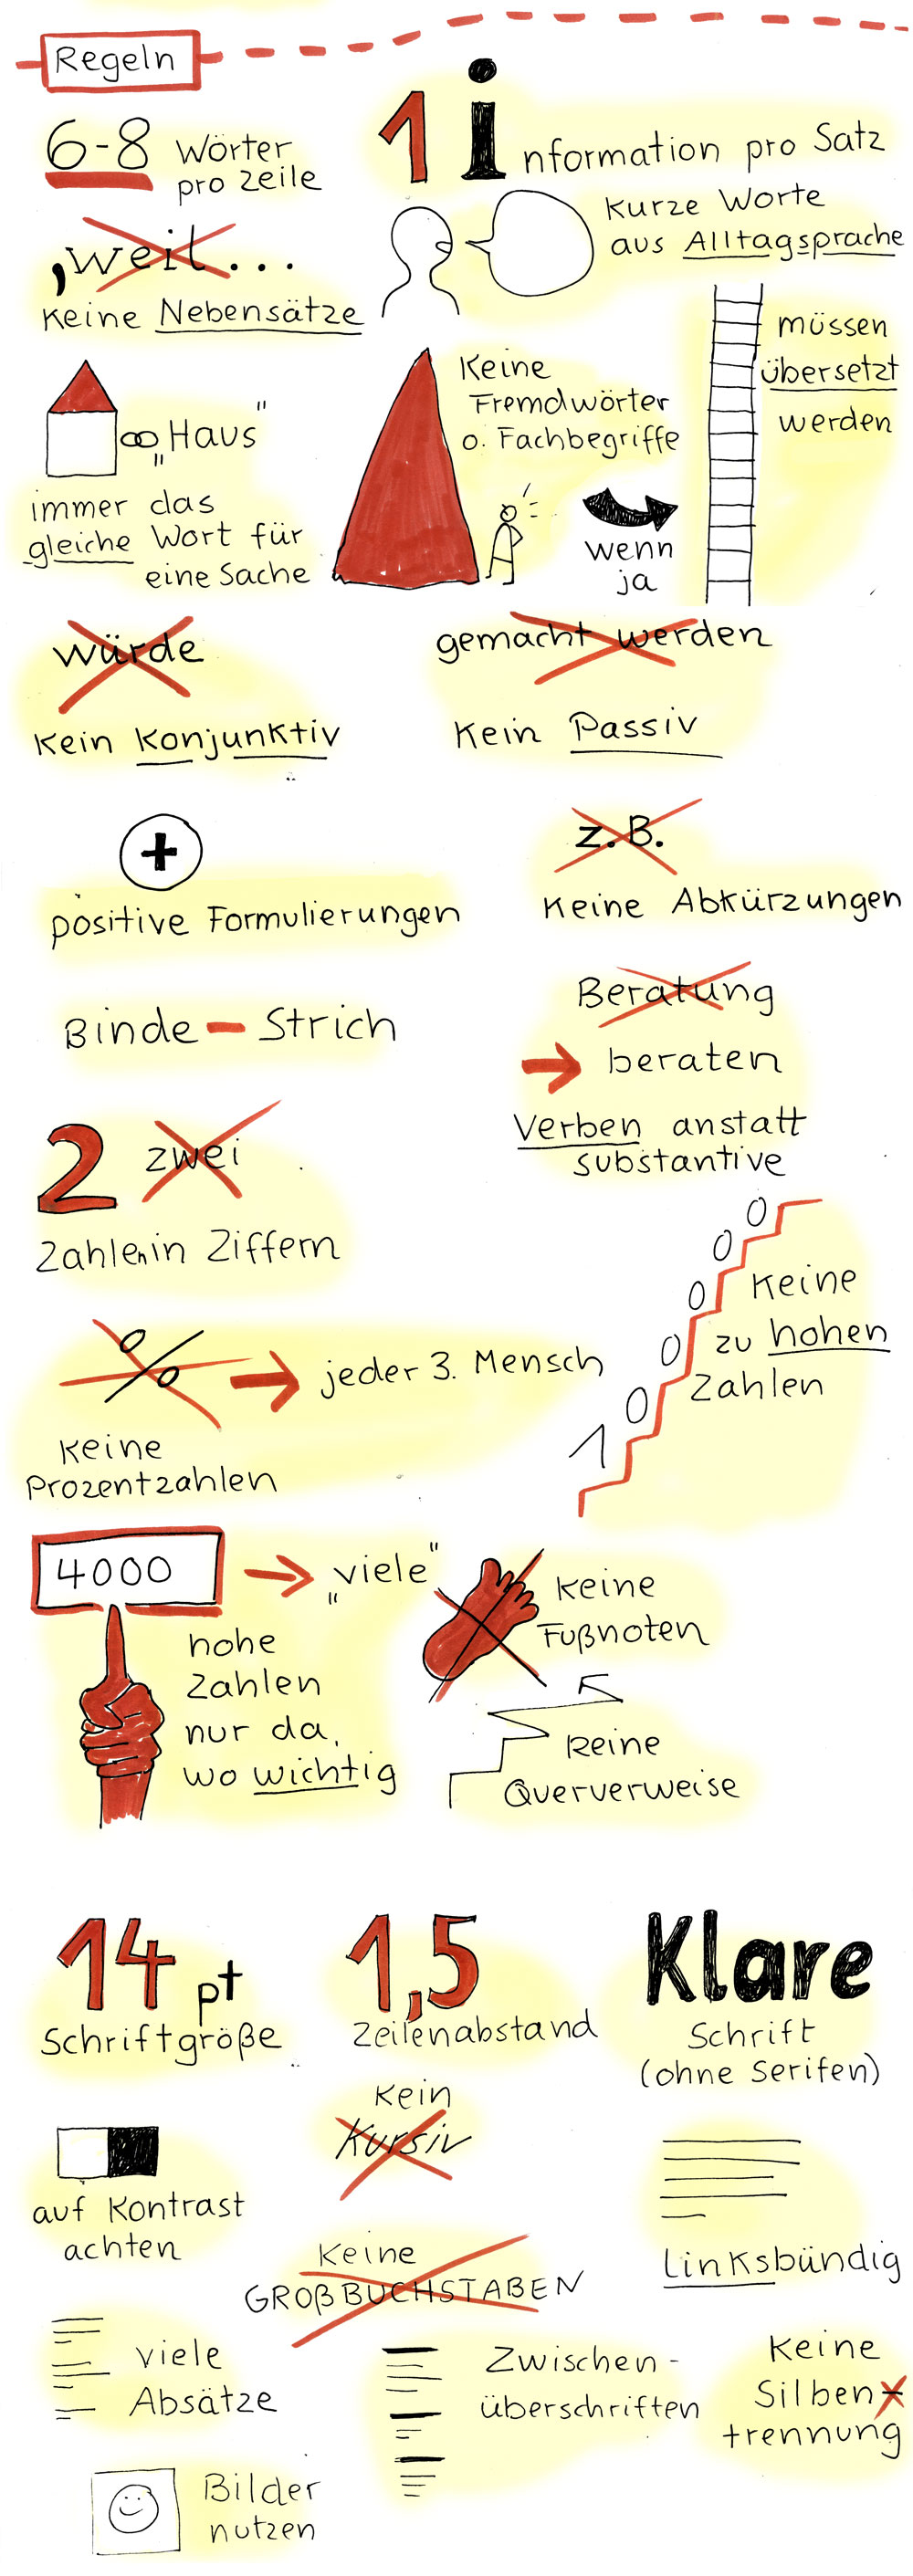 Regeln
6-8 Wörter
pro Zeile
1 information pro Satz
Kurze Worte
aus Alltagsprache
, weil...
Keine Nebensätze
"Haus"
immer das
gleiche Wort für
eine Sache
Keine
Fremdwörter
o. Fachbegriffe
wenn
ja
müssen
übersetzt
werden
würde
Kein Konjunktiv
gemacht werden
Kein Passiv
+
positive Formulierungen
z.B.
Keine Abkürzungen
Binde-Strich
Beratung
beraten
Verben anstatt
substantive
2 zwei
Zahlen in Ziffern
100000
Keine
zu hohen
Zahlen
% → jeder 3. Mensch
Keine
Prozentzahlen
4000 → „viele"
hohe
Zahlen
nur da,
wo wichtig
Keine
Fußnoten
Keine
Querverweise
14 pt
Schriftgröße
1,5
Zeilenabstand
Klare
Schrift
(ohne Serifen)
auf Kontrast
achten
Kein
Kursiv
Linksbündig
Keine
GROßBUCHSTABEN
viele
Absätze
Zwischen-
überschriften
Keine
Silben-
trennung
Bilder
nutzen